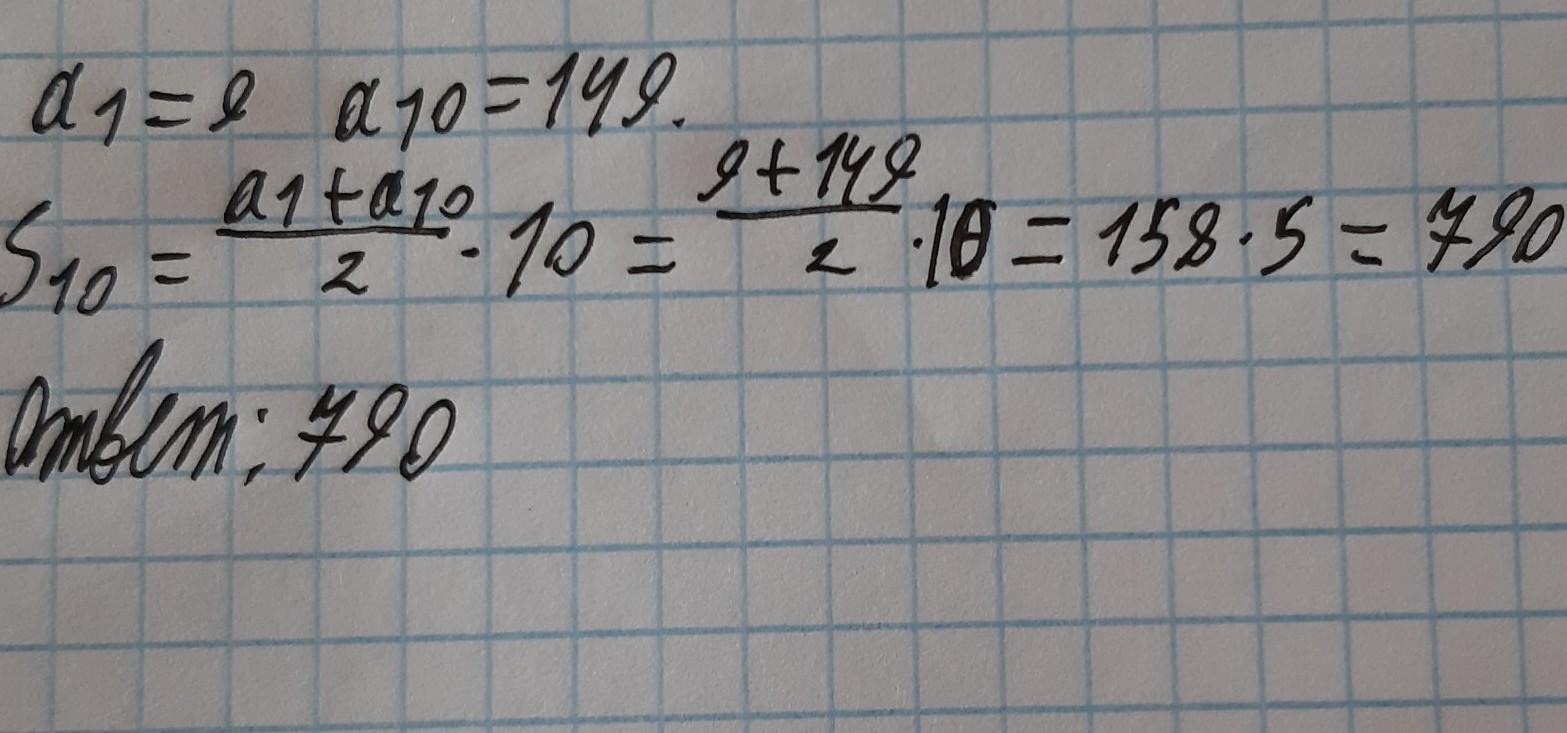 a₁ = 9 a₁₀ = 149.
S₁₀ = (a₁ + a₁₀)/2 · 10 = (9 + 149)/2 · 10 = 158 · 5 = 790
Ответ: 790